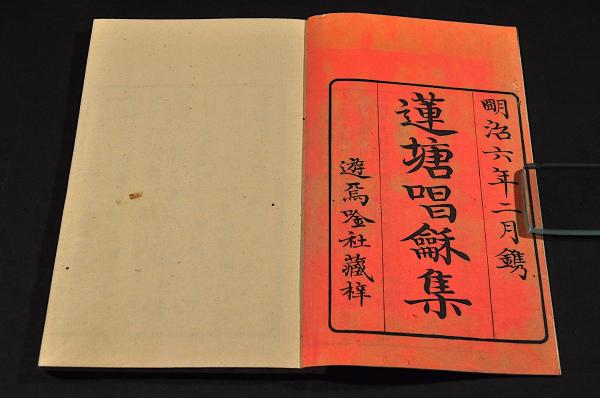 明治六年二月鐫
蓮塘唱龢集
遊焉唫社藏梓